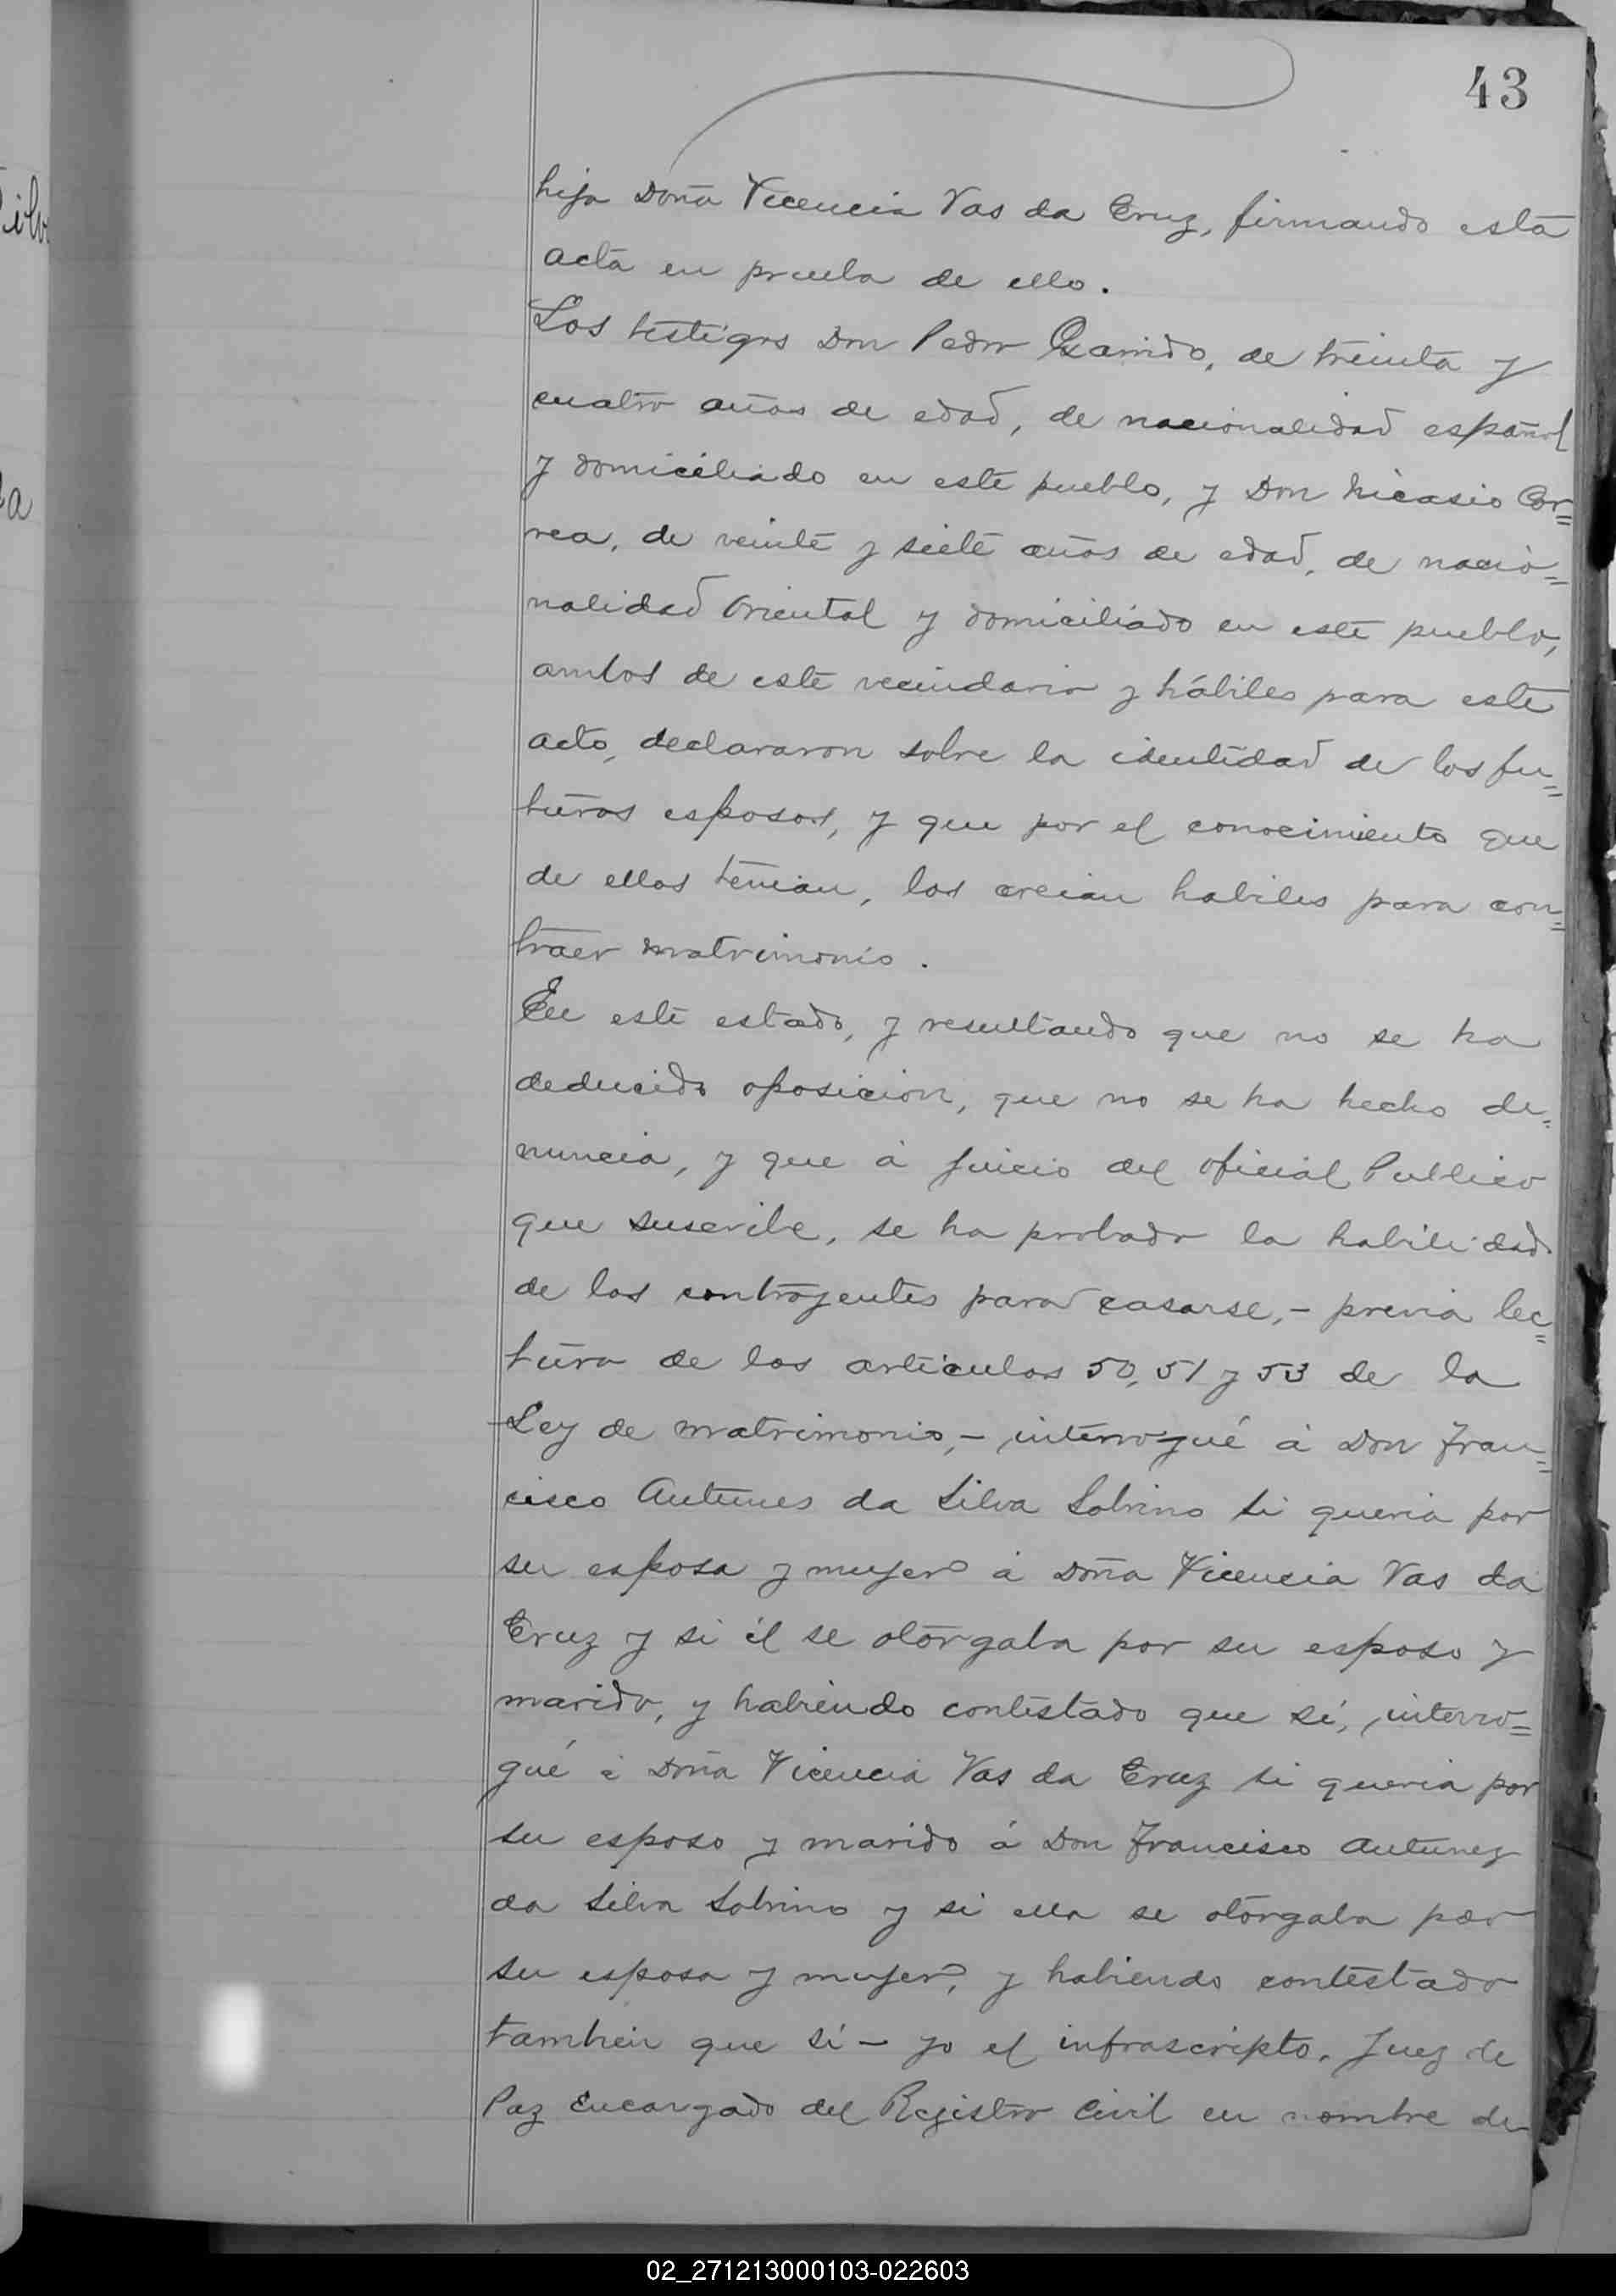 43
hija Doña Vicencia Vas da Cruz, firmando esta
acta en prueba de ello.
Los testigos Don Pedro Garrido, de treinta y
cuatro años de edad, de nacionalidad español
y domiciliado en este pueblo, y Don Nicasio Cor=
rea, de veinte y siete años de edad, de nacio=
nalidad Oriental y domiciliado en este pueblo,
ambos de este vecindario y hábiles para este
acto, declararon sobre la identidad de los fu=
turos esposos, y que por el conocimiento que
de ellos tenian, los creian habiles para con=
traer matrimonio.
En este estado, y resultando que no se ha
deducido oposicion, que no se ha hecho de=
nuncia, y que á juicio del oficial Publico
que suscribe, se ha probado la habilidad
de los contrayentes para casarse,- previa lec=
tura de los articulos 50, 51 y 53 de la
Ley de matrimonio,- interrogué á Don Fran=
cisco Antunes da Silva Sobrino si queria por
su esposa y mujer á Doña Vicencia Vas da
Cruz y si él se otorgaba por su esposo y
marido, y habiendo contestado que sí, interro=
gué á Doña Vicencia Vas da Cruz si queria por
su esposo y marido á Don Francisco Antunez
da Silva Sobrino y si ella se otorgaba por
su esposa y mujer, y habiendo contestado
tambien que sí - yo el infrascripto, Juez de
Paz Encargado del Registro Civil en nombre de
02_271213000103-022603